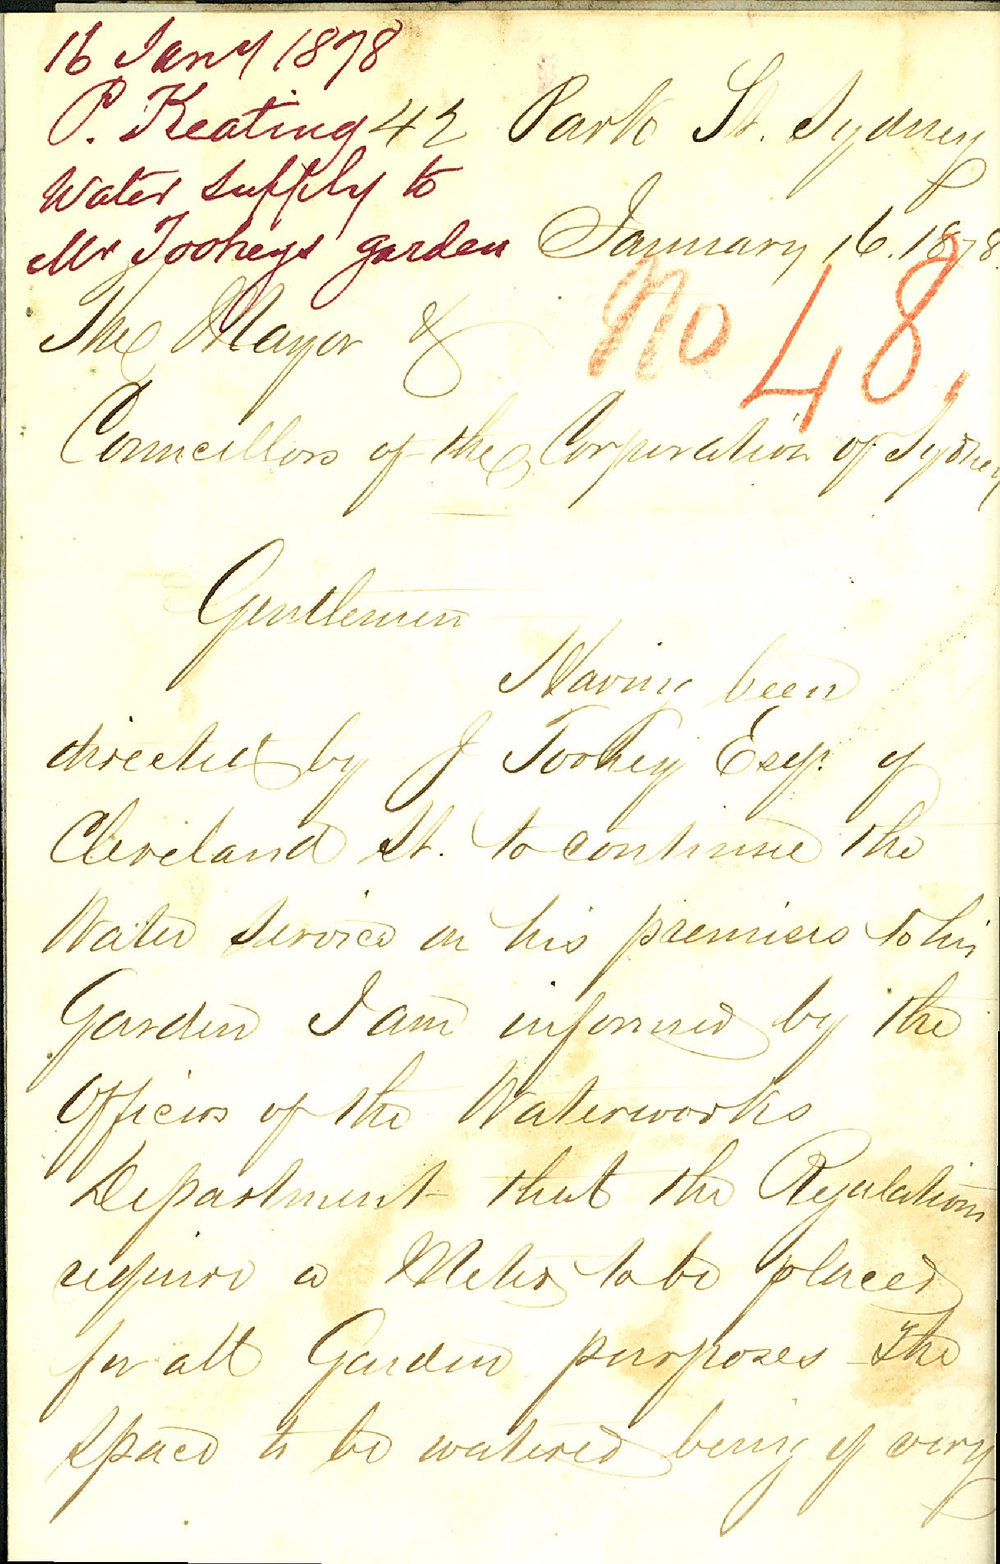 16 Jany 1878
P. Keating
Water supply to
Mr Tooheys garden
42 Park St. Sydney
January 16. 1878.
No 48.
The Mayor &
Councillors of the Corporation of Sydney
Gentlemen
Having been
directed by J Toohey Esqr. of
Cleveland St. to continue the
Water Service on his premises to his
Garden I am informed by the
Officers of the Waterworks
Department that the Regulations
require a Meter to be placed
for all Garden purposes The
space to be watered being of very